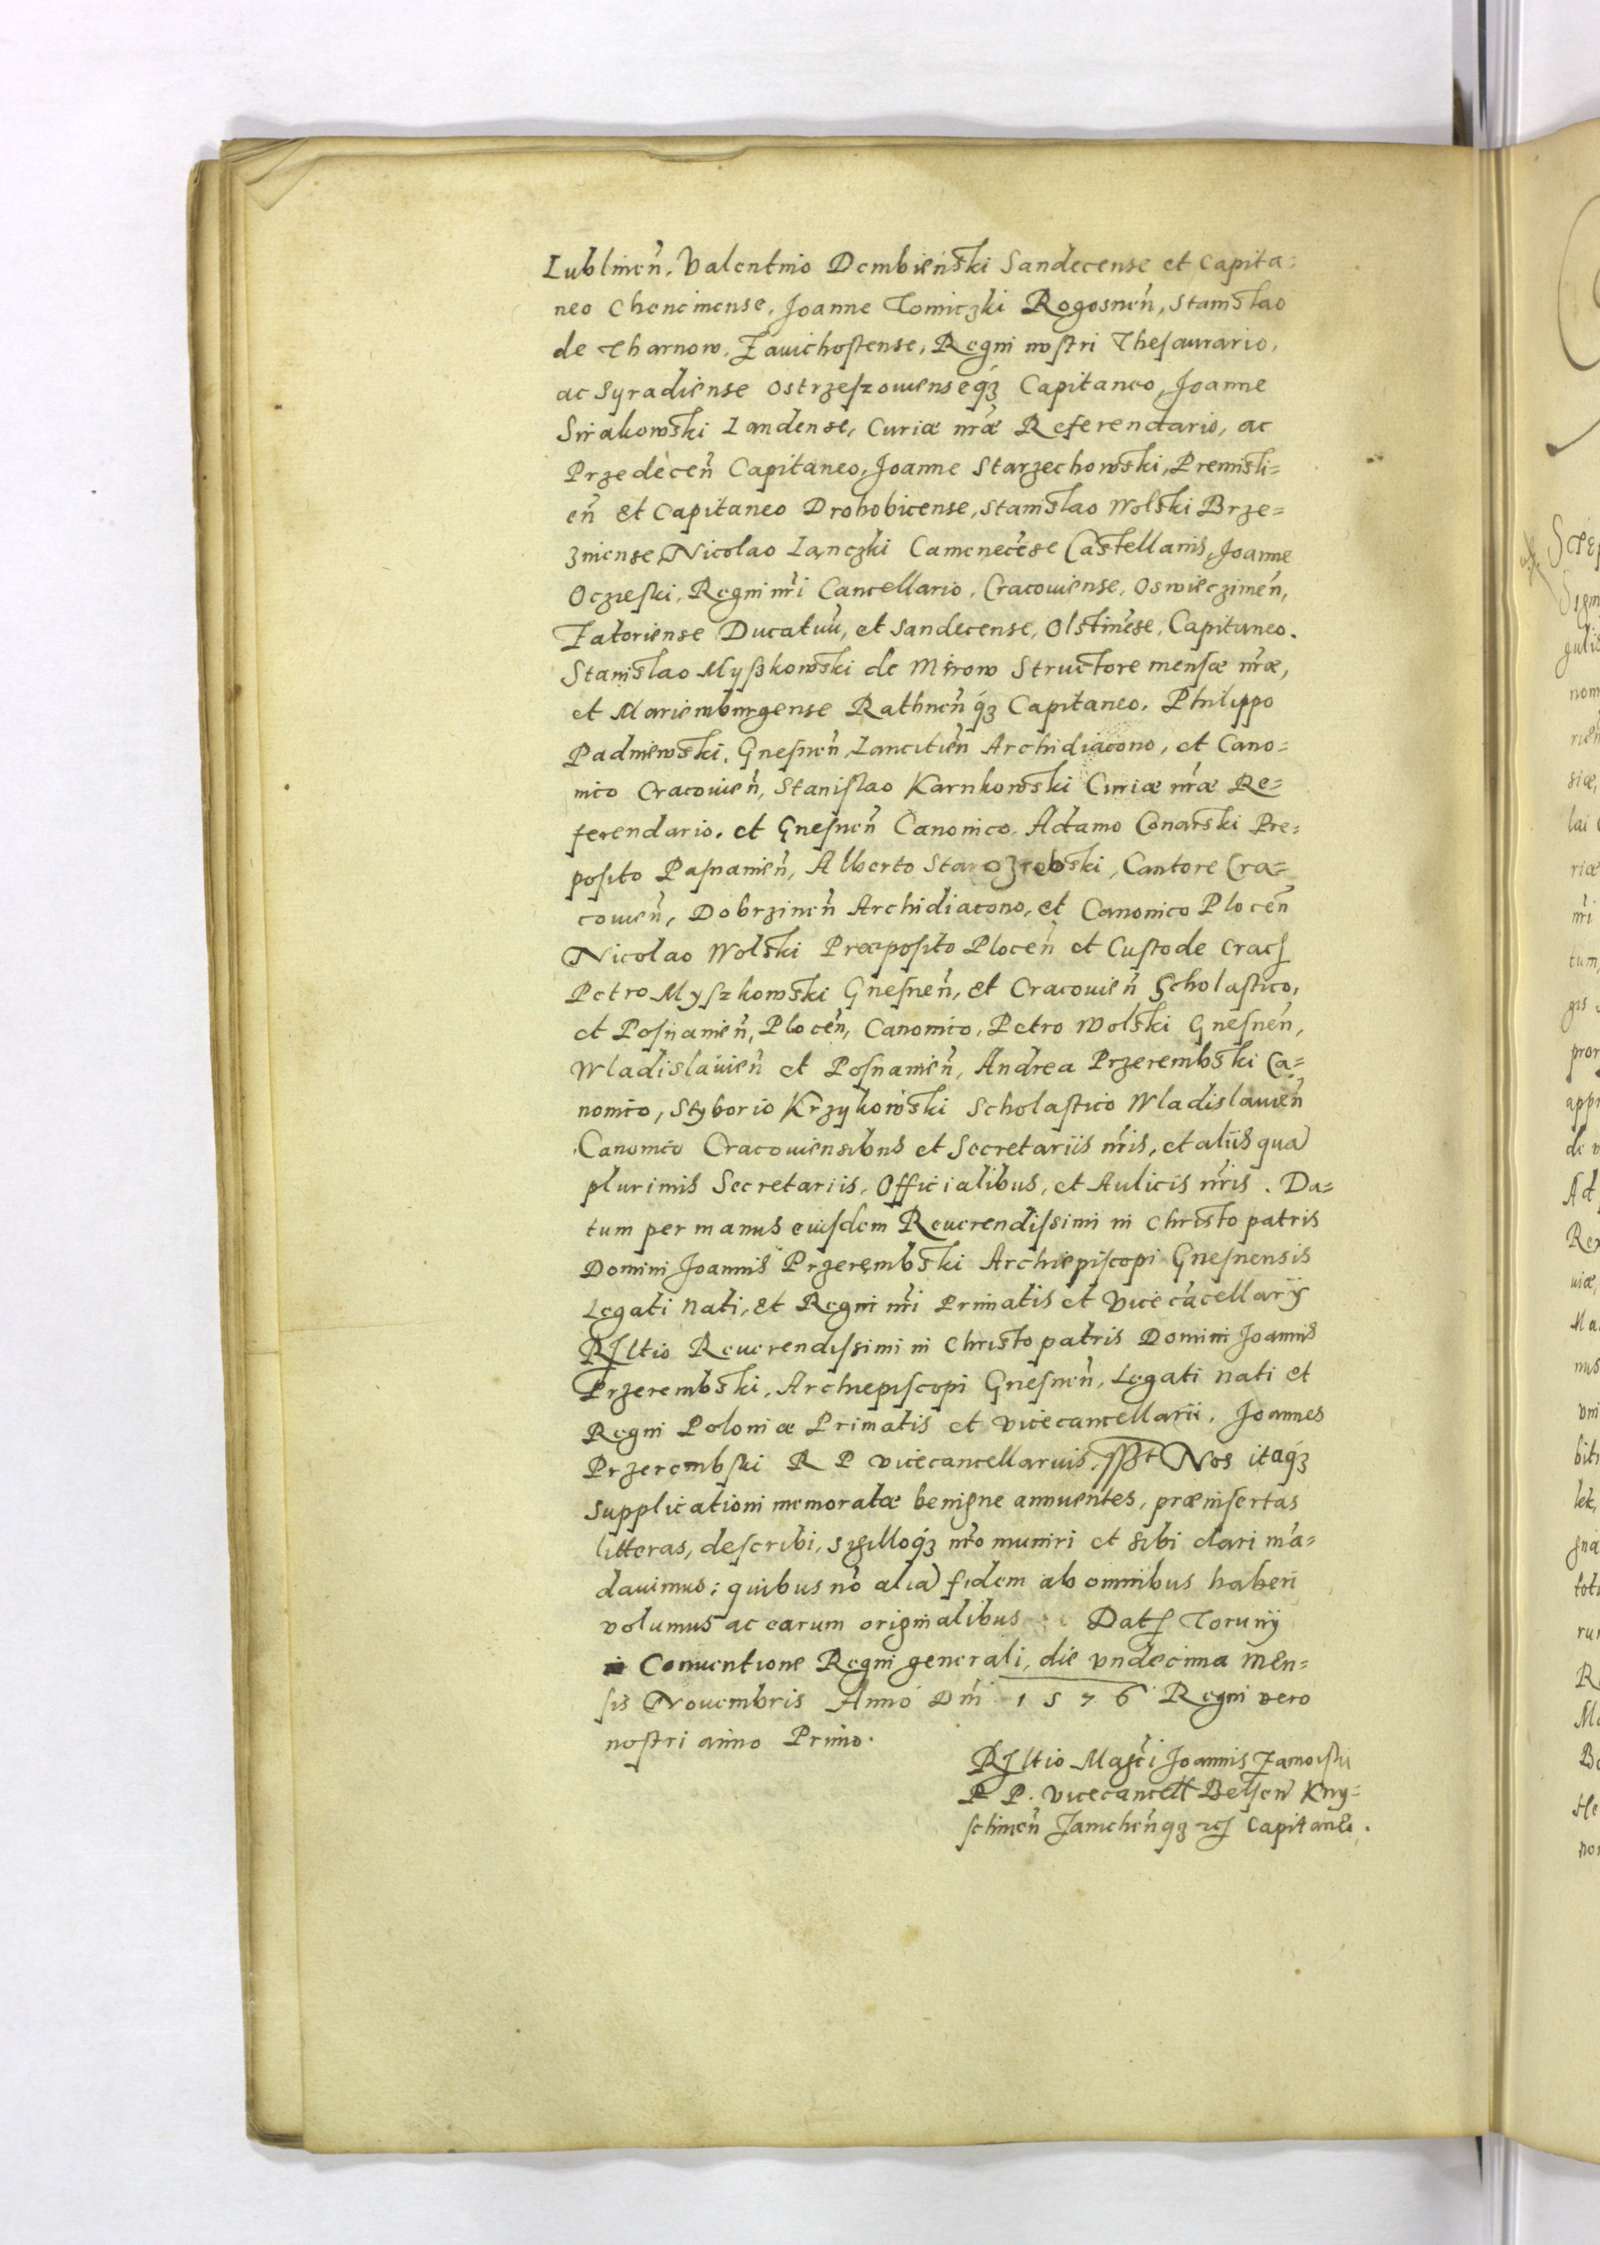 Lublineñ. Valentino Dembieński Sandecense et Capita-
neo Chencinense, Joanne Tomiczki Rogosneñ, Stanislao
de Tharnow, Zauichostense, Regni nostri Thesaurario,
ac Syradiense Ostrzeszowienseq₃ Capitaneo, Joanne
Sirakowski Landense, Curiæ nr̃æ Referendario, ac
Przedeceñ Capitaneo, Joanne Starzechowski, Premisli=
eñ et Capitaneo Drohobicense, Stanislao Wolski Brze=
zinense, Nicolao Lanczki Camenecẽse Castellanis, Joanne
Oczieski, Regni nr̃i Cancellario, Cracouiense, Oswieczimeñ,
Zatoriense Ducatuũ, et Sandecense, Olstinẽse, Capitaneo.
Stanislao Myszkowski de Mirow Structore mensæ nr̃æ,
et Mariemburgense Rathneñq₃ Capitaneo, Philippo
Padniewski, Gnesneñ Lancitieñ Archidiacono, et Cano=
nico Cracouieñ, Stanislao Karnkowski Curiæ nr̃æ Re=
ferendario, et Gnesneñ Canonico, Adamo Conarski Pre=
posito Pasnanieñ, Alberto Starozrebski, Cantore Cra=
couieñ, Dobrzineñ Archidiacono, et Canonico Ploceñ
Nicolao Wolski Præposito Ploceñ et Custode Crac
Petro Myszkowski Gnesneñ, et Cracouieñ Scholastico,
et Posnanieñ, Ploceñ, Canonico, Petro Wolski Gnesneñ,
Wladislauieñ et Posnanieñ, Andrea Przerembski Ca=
nonico, Styborio Krzykowski Scholastico Wladislauieñ
Canonico Cracouiensibus et Secretariis nr̃is, et aliis qua
plurimis Secretariis, Officialibus, et Aulicis nr̃is. Da=
tum per manus eiusdem Reuerendissimi in Christo patris
Domini Joannis Przerembski Archiepiscopi Gnesnensis
Legati Nati, et Regni nr̃i Primatis et Vicecãcellarij
Rltio Reuerendissimi in Christo patris Domini Joannis
Przerembski, Archiepiscopi Gnesneñ, Legati nati et
Regni Poloniæ Primatis et vicecancellarii. Joannes
Przerembski R P vicecancellarius sspt Nos itaq₃
supplicationi memoratæ benigne annuentes, præinsertas
litteras, describi, sigilloq₃ nr̃o muniri et sibi dari mã=
dauimus: quibus nõ alia fidem ab omnibus haberi
volumus ac earum originalibus Dat Torunij
in Conuentione Regni generali, die vndecima Men=
sis Nouembris Anno Dñi 1576 Regni vero
nostri anno Primo.
Rltio Magci Joannis Zamoiski
R P. Vicecancell Belseñ Kny=
schineñ Zamcheñq₃ rc Capitanei.